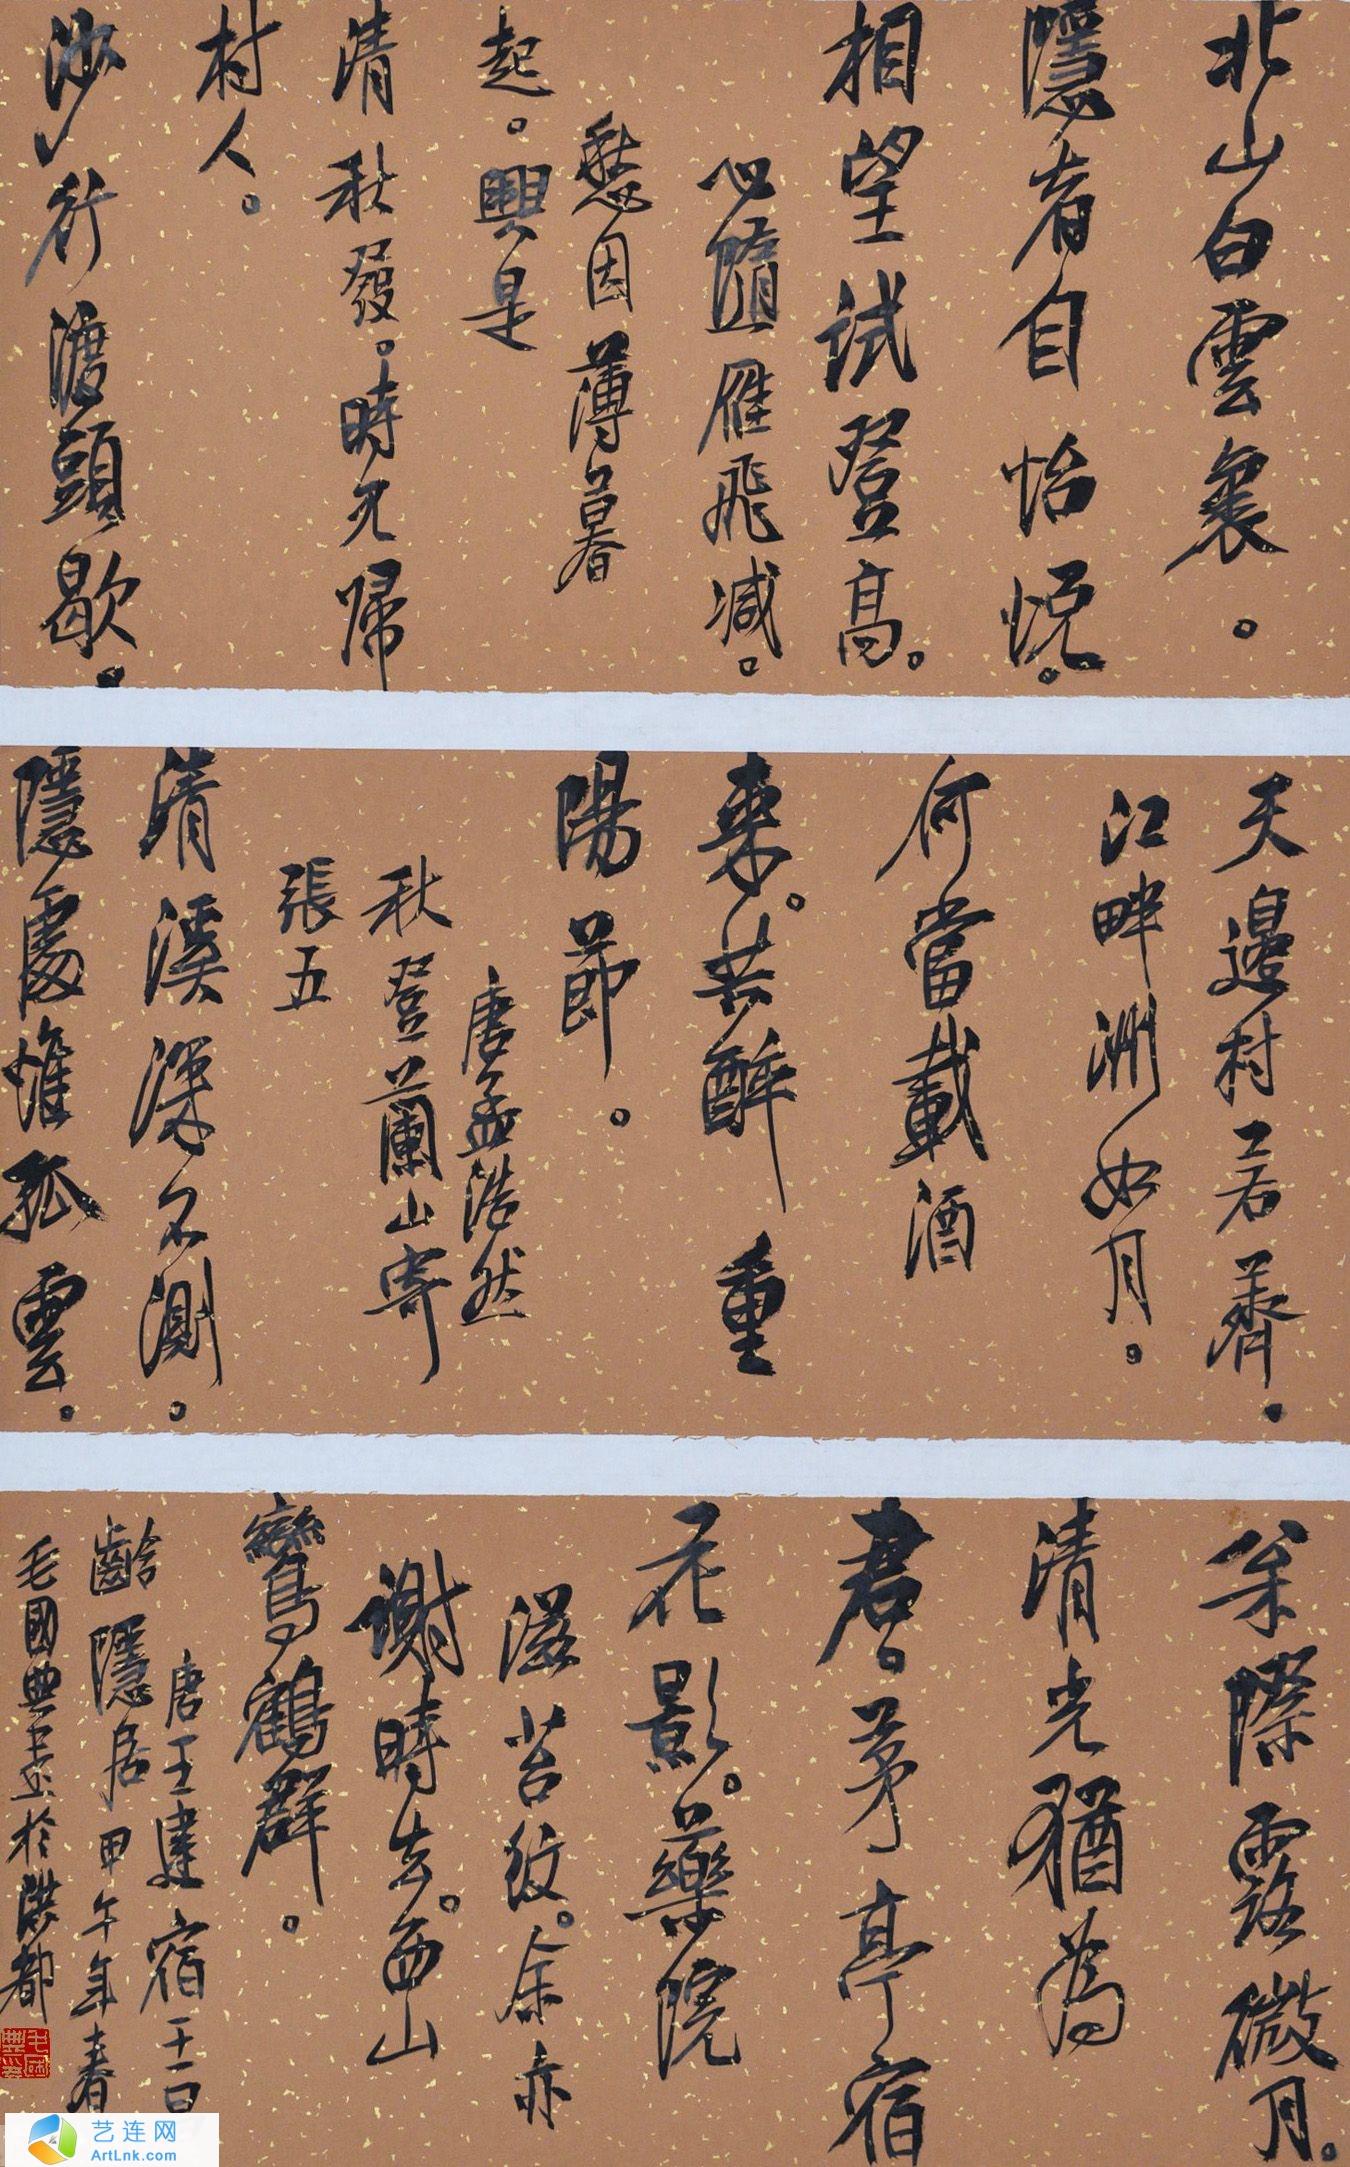 北山白雲裏。
隱者自怡悦。
相望試登高。
心隨雁飛減。
愁因薄暮
起。興是
清秋發。時見歸
村人。
沙行渡頭歇。
天邊村若薺。
江畔洲如月。
何當載酒
來。共醉重
陽節。
唐孟浩然
秋登蘭山寄
張五
清溪深不測。
隱處惟孤雲。
松際露微月。
清光猶為
君。茅亭宿
花影。藥院
滋苔紋。余亦
謝時去。西山
鸞鶴群。
唐王建宿王昌
齡隱居甲午年春
毛國典書於洪都
艺连网
ArtLnk.com